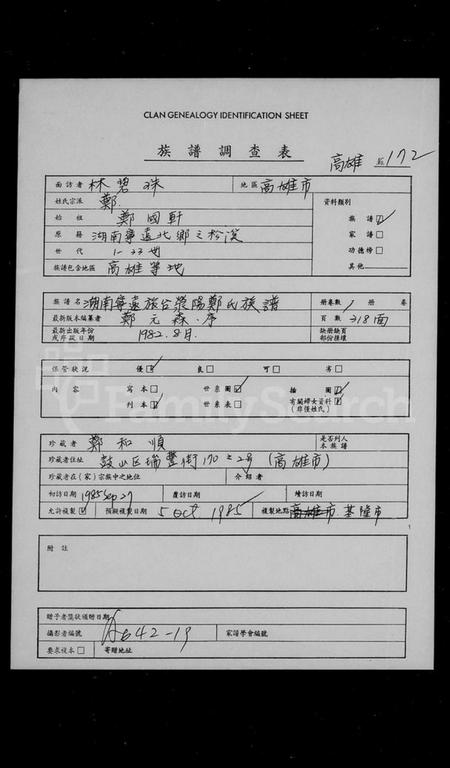 CLAN GENEALOGY IDENTIFICATION SHEET
族譜調查表
高雄 172
面訪者 林碧珠 地區 高雄市
姓氏宗派 鄭 資料類別
始祖 鄭國軒 族譜 ☑
原籍 湖南寧遠北鄉之衿溪 家譜 □
世代 1-33世 功德榜 □
族譜包含地區 高雄等地 其他
族譜名 湖南寧遠旅台滎陽鄭氏族譜 冊卷數 1 冊 卷
最新版本編纂者 鄭元森.序 頁數 318面
最新出版年份 或序跋日期 1982.8月. 缺冊缺頁 部份損壞
保管狀況 優 ☑ 良 □ 可 □ 劣 □
內容 寫本 □ 世系圖 ☑ 插圖 ☑
刊本 ☑ 世系表 □ 有關婦女資料 ☑ (非僅姓氏)
珍藏者 鄭和順 是否列入 本族譜
珍藏者住址 鼓山區瑞豐街170之2号 (高雄市)
珍藏者在(家)宗族中之地位 介紹者
初訪日期 1985 Sep 27 覆訪日期 續訪日期
允許複製 ☑ 預擬複製日期 5 Oct 1985 複製地點 高雄市. 基隆市
附註
贈予者獎狀頒贈日期
攝影者編號 A642-19 家譜學會編號
要求複本 □ 寄贈地址
FamilySearch